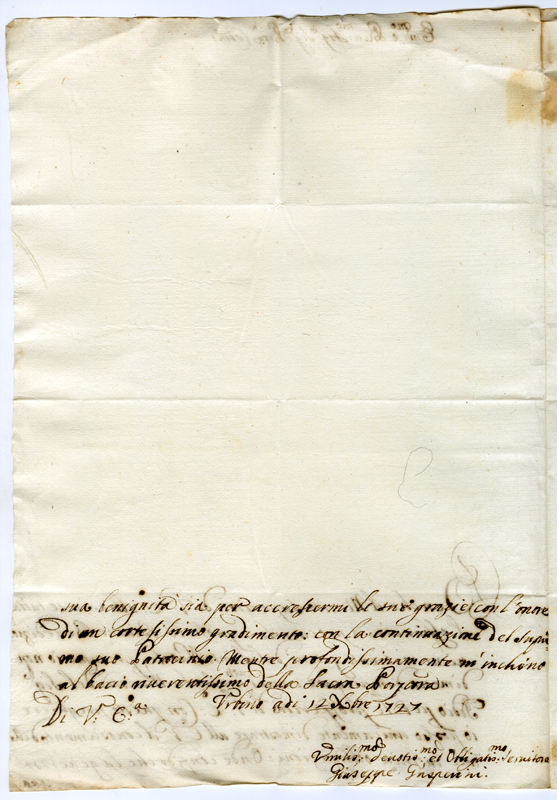 sua benignità sia per accrescermi le sue grazie con l'onore
di un cortesissimo gradimento: con la continuazione del Supre-
mo suo Patrocinio. Mentre profondissimamente m'inchino
al bacio riverentissimo della Sacra Porpora
Di V: E:a Urbino adi 12 Xbre 1727
Vmilis:mo Deuotis:mo et Obligatis:mo Seruitore
Giuseppe Gasperini.